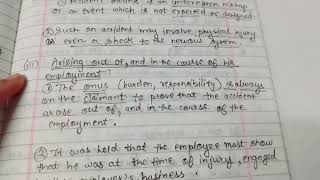 ① Accident means is an unforeseen mishap
or an event which is not expected or designed.
② Such an accident may involve physical injury
or even a shock to the nervous system
(iii) Arising out of, and in the course of his
employment :
① The onus (burden, responsibility) is always
on the claimant to prove that the accident
arose out of, and in the course of the
employment.
② It was held that the employee must show
that he was at the time of injury, engaged
employer's business.